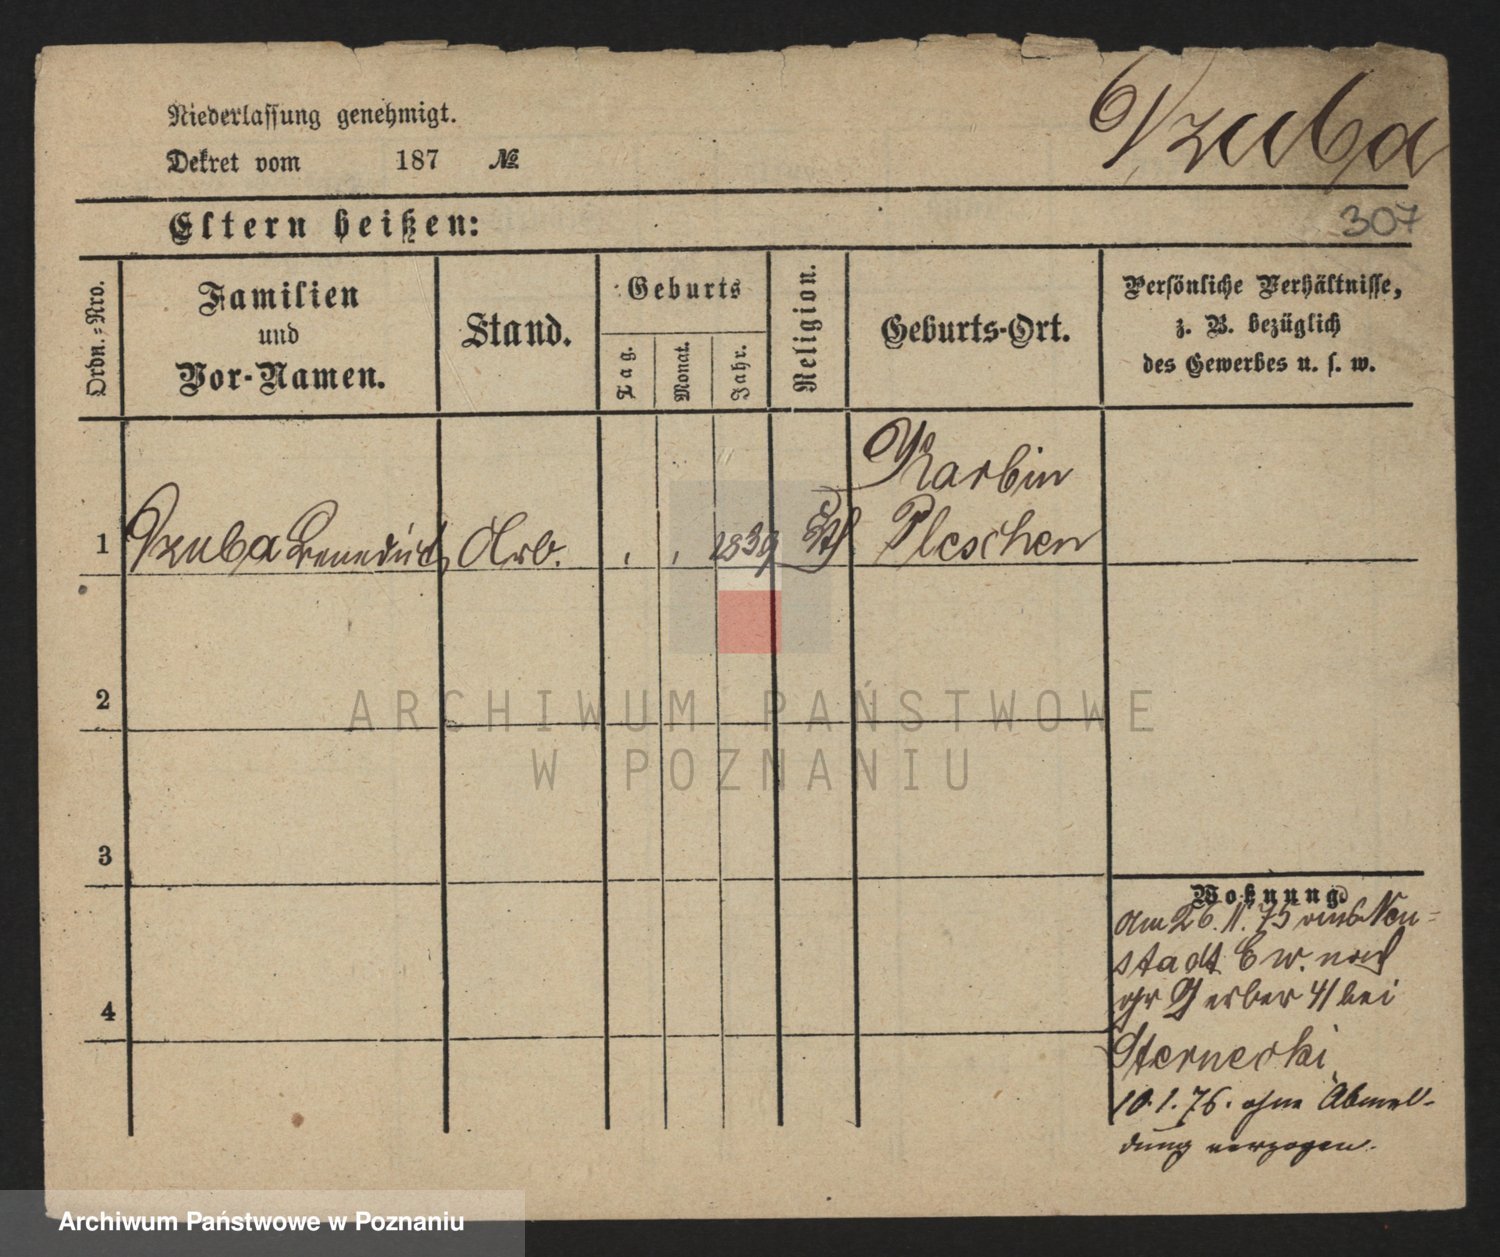 Niederlassung genehmigt.
Dekret vom 187 №
Dzuba
307
Eltern heißen:
Ordn.-Nro.
Familien
und
Vor-Namen.
Stand.
Geburts
Tag.
Monat.
Jahr.
Religion.
Geburts-Ort.
Persönliche Verhältnisse,
z. B. bezüglich
des Gewerbes u. s. w.
1 Dzuba Arb. 1839 Kth
Karbin
Pleschen
2
3
4
Wohnung
am 26.11.75 aus Neu-
stadt nach
gr Gerber 41 bei
10.1.76. ohne Abmel-
dung verzogen.
ARCHIWUM PAŃSTWOWE
W POZNANIU
Archiwum Państwowe w Poznaniu